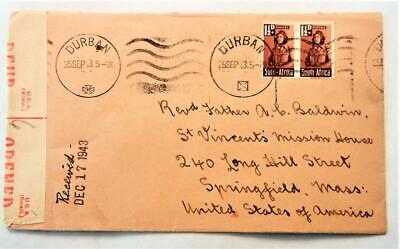 DURBAN
25 SEP 43.5-
DURBAN
25 SEP 43.5-
1½D
1½D
Suid-Afrika
South Africa
OPENER
U.C.A.
Received
DEC 17 1943
Revd Father A. C. Baldwin,
St Vincent's Mission House
240 Long Hill Street
Springfield, Mass:
United States of America